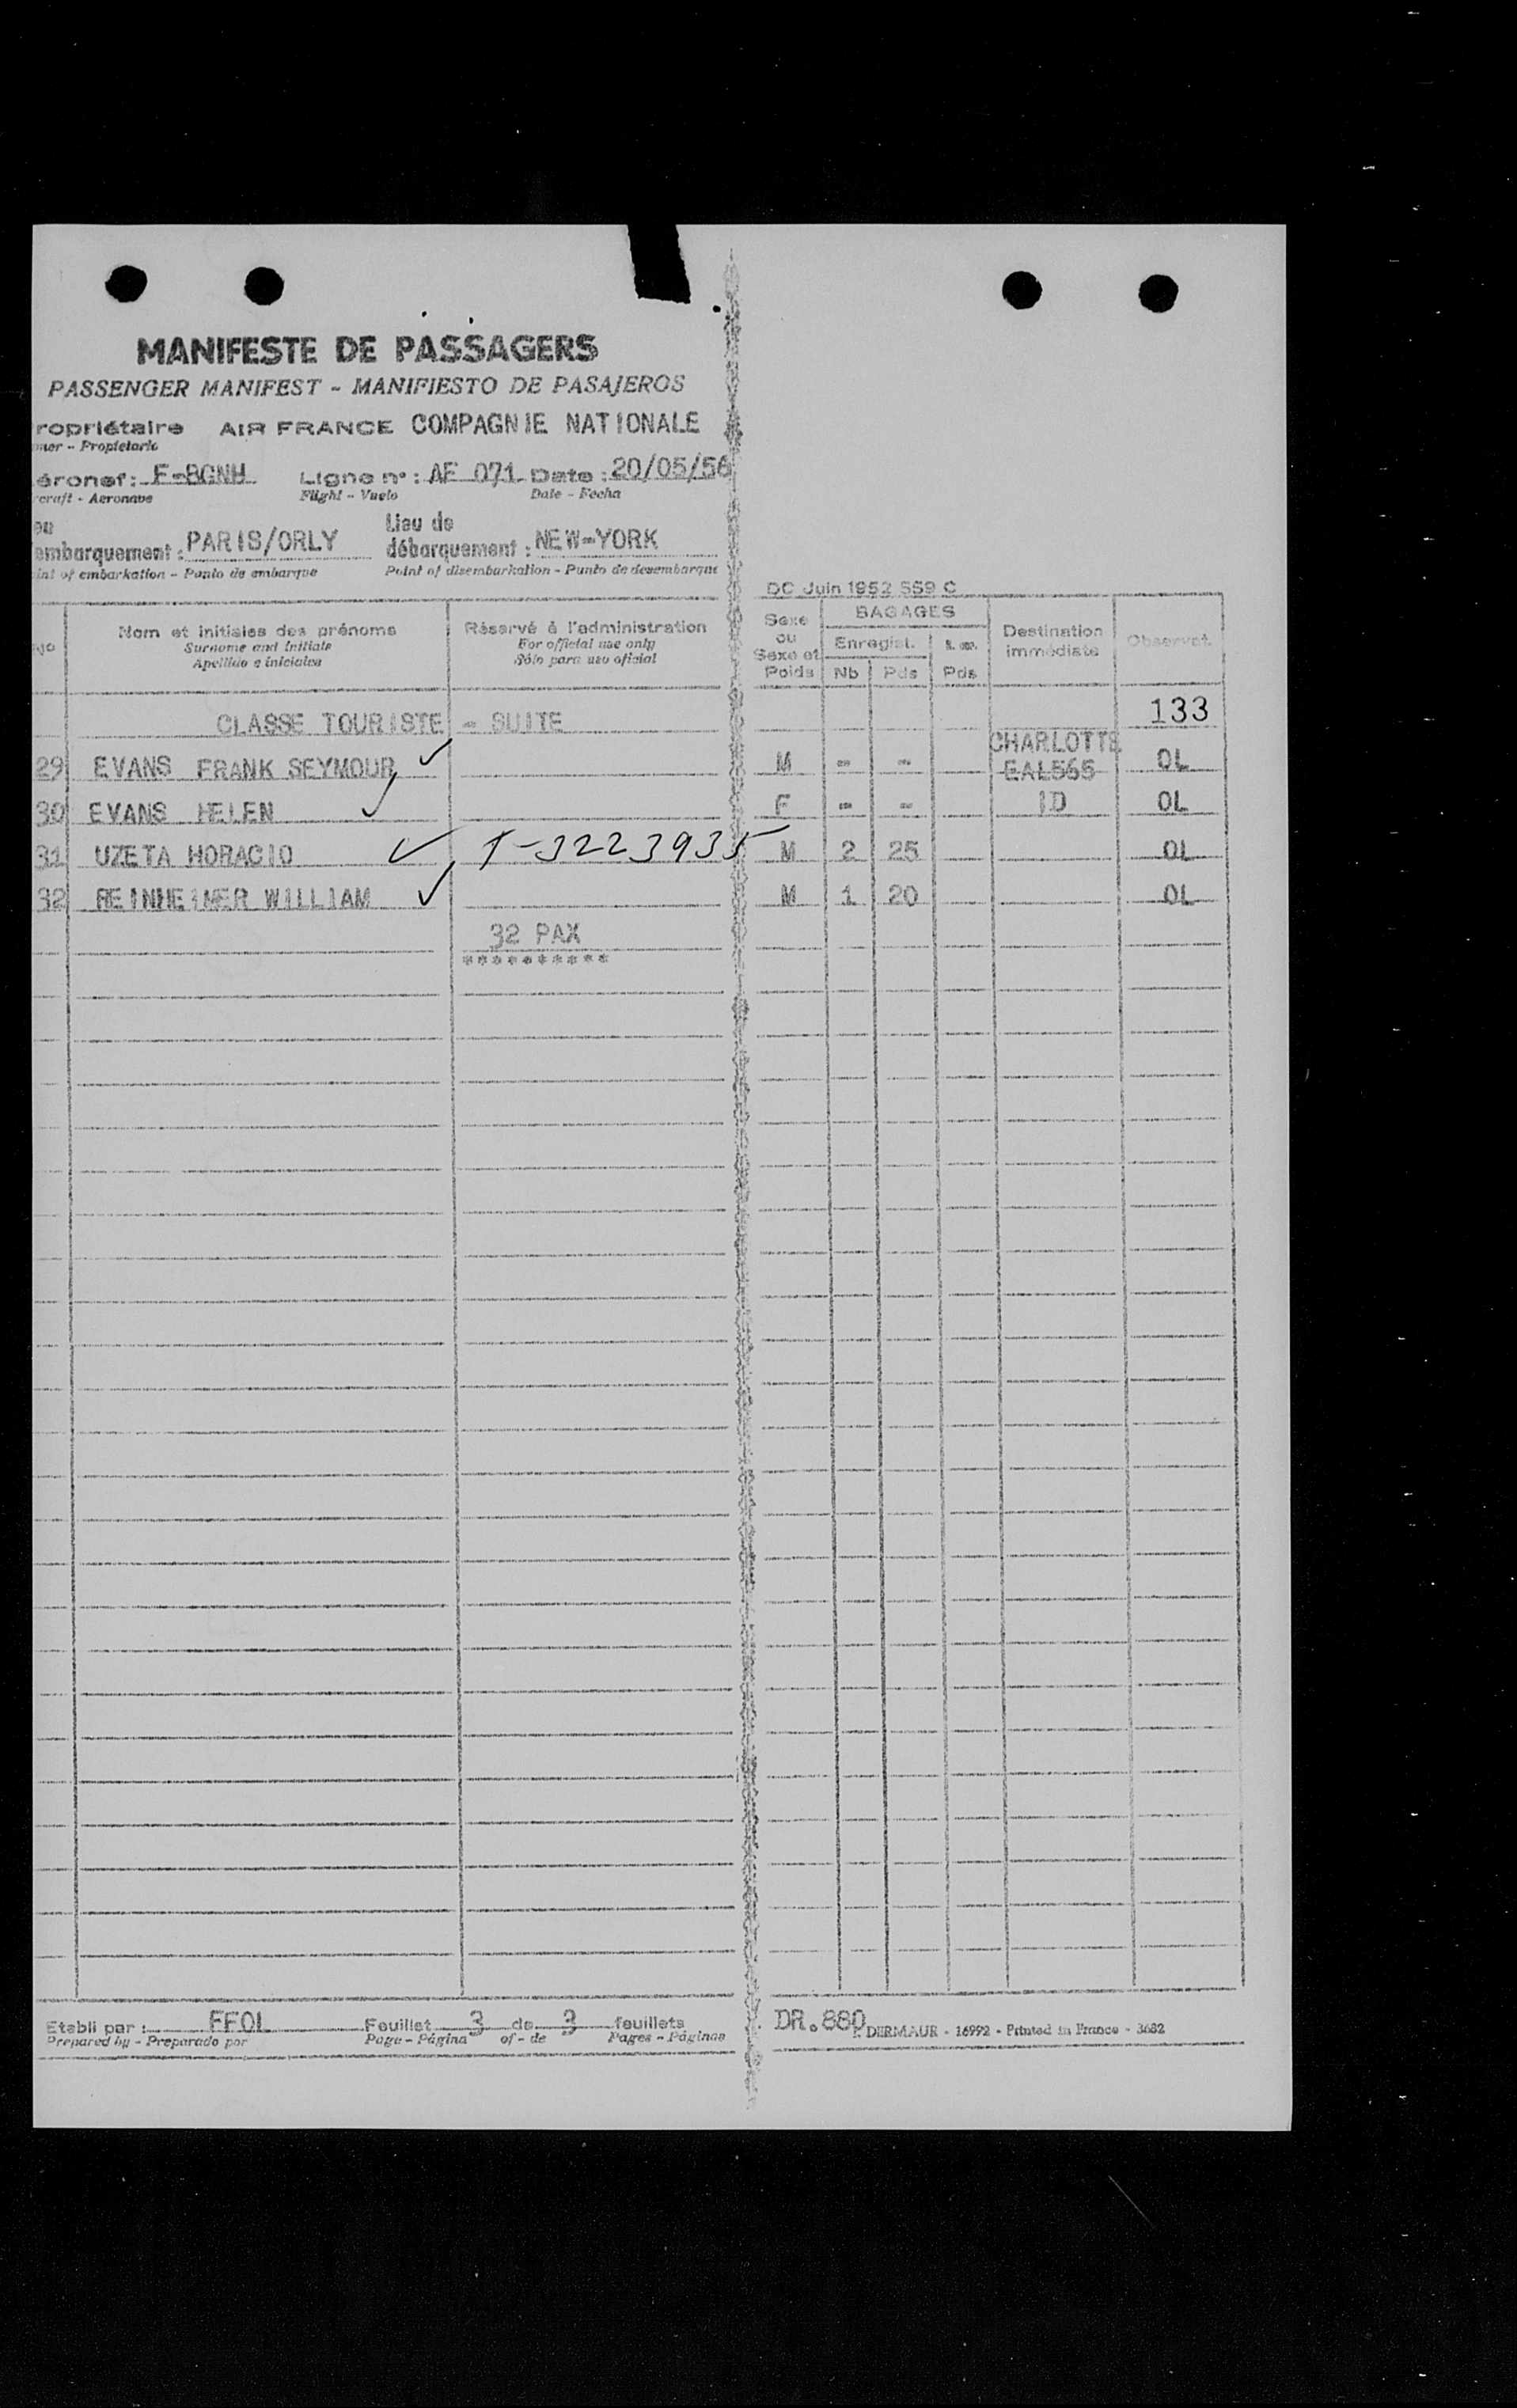 MANIFESTE DE PASSAGERS
PASSENGER MANIFEST - MANIFIESTO DE PASAJEROS
ropriétaire AIR FRANCE COMPAGNIE NATIONALE
ner - Propietario
éronef: F-BGNH Ligne n°: AF 071 Date: 20/05/56
craft - Aeronave Flight - Vuelo Date - Fecha
eu Lieu de
embarquement: PARIS/ORLY débarquement: NEW-YORK
int of embarkation - Punto de embarque Point of disembarkation - Punto de desembarque
DC Juin 1952 559 C
Nom et initiales des prénoms
Surname and initials
Apellido e iniciales
Réservé à l'administration
For official use only
Sólo para uso oficial
Sexe ou Sexe et Poids
BAGAGES
Enregist.
Nb Pds Pds
Destination immédiate
Observat.
CLASSE TOURISTE - SUITE 133
CHARLOTTE
29 EVANS FRANK SEYMOUR M - - EAL565 OL
30 EVANS HELEN F - - ID OL
31 UZETA HORACIO T-3223935 M 2 25 OL
32 REINHEIMER WILLIAM M 1 20 OL
32 PAX
**********
Etabli par: FFOL Feuillet 3 de 3 feuillets
Prepared by - Preparado por Page - Página of - de Pages - Páginas
DR.880 DERMAUR - 16992 - Printed in France - 3682